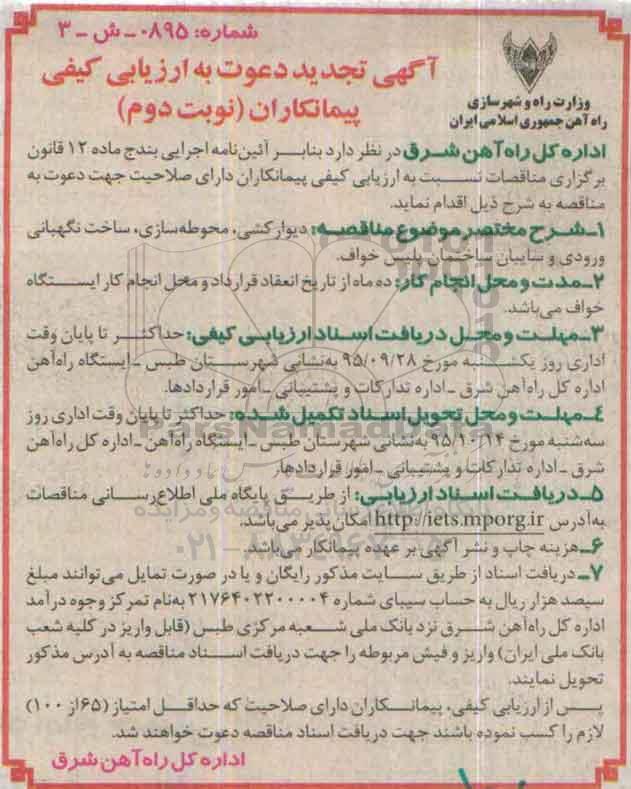 شماره: ۰۸۹۵ - ش - ۳
وزارت راه و شهرسازی
راه آهن جمهوری اسلامی ایران
آگهی تجدید دعوت به ارزیابی کیفی
پیمانکاران (نوبت دوم)
اداره کل راه آهن شرق در نظر دارد بنابر آئین‌نامه اجرایی بندج ماده ۱۲ قانون
برگزاری مناقصات نسبت به ارزیابی کیفی پیمانکاران دارای صلاحیت جهت دعوت به
مناقصه به شرح ذیل اقدام نماید.
۱ـ شرح مختصر موضوع مناقصه: دیوارکشی، محوطه‌سازی، ساخت نگهبانی
ورودی و سایبان ساختمان پلیس خواف.
۲ـ مدت و محل انجام کار: ده ماه از تاریخ انعقاد قرارداد و محل انجام کار ایستگاه
خواف می‌باشد.
۳ـ مهلت و محل دریافت اسناد ارزیابی کیفی: حداکثر تا پایان وقت
اداری روز یکشنبه مورخ ۹۵/۰۹/۲۸ به‌نشانی شهرستان طبس ـ ایستگاه راه‌آهن
اداره کل راه‌آهن شرق ـ اداره تدارکات و پشتیبانی ـ امور قراردادها.
۴ـ مهلت و محل تحویل اسناد تکمیل شده: حداکثر تا پایان وقت اداری روز
سه‌شنبه مورخ ۹۵/۱۰/۱۴ به‌نشانی شهرستان طبس ـ ایستگاه راه‌آهن ـ اداره کل راه‌آهن
شرق ـ اداره تدارکات و پشتیبانی ـ امور قراردادها.
۵ـ دریافت اسناد ارزیابی: از طریق پایگاه ملی اطلاع‌رسانی مناقصات
به‌آدرس http://iets.mporg.ir امکان‌پذیر می‌باشد.
۶ـ هزینه چاپ و نشر آگهی بر عهده پیمانکار می‌باشد.
۷ـ دریافت اسناد از طریق سایت مذکور رایگان و یا در صورت تمایل می‌توانند مبلغ
سیصد هزار ریال به حساب سیبای شماره ۲۱۷۶۴۰۲۲۰۰۰۰۴ به‌نام تمرکز وجوه درآمد
اداره کل راه‌آهن شرق نزد بانک ملی شعبه مرکزی طبس (قابل واریز در کلیه شعب
بانک ملی ایران) واریز و فیش مربوطه را جهت دریافت اسناد مناقصه به آدرس مذکور
تحویل نمایند.
پس از ارزیابی کیفی، پیمانکاران دارای صلاحیت که حداقل امتیاز (۶۵از ۱۰۰)
لازم را کسب نموده باشند جهت دریافت اسناد مناقصه دعوت خواهند شد.
اداره کل راه آهن شرق
ParsNamadData